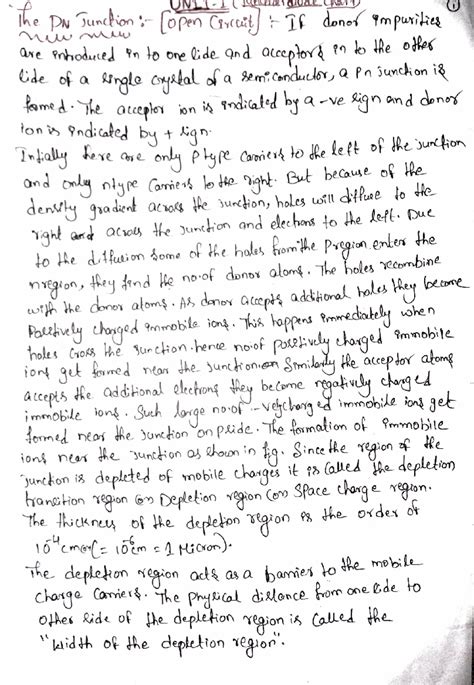 UNIT-I (Junction diode Char)
The PN Junction :- [Open Circuit] :- If donor impurities
are introduced in to one side and acceptors in to the other
side of a single crystal of a semiconductor, a Pn junction is
formed. The acceptor ion is indicated by a -ve sign and donor
ion is indicated by + sign.
Initially there are only ptype Carriers to the left of the junction
and only ntype Carriers to the right. But because of the
density gradient across the junction, holes will diffuse to the
right and across the junction and electrons to the left. Due
to the diffusion some of the holes from the Pregion enter the
nregion, they find the no.of donor atoms. The holes recombine
with the donor atoms. As donor accepts additional holes they become
Positively charged immobile ions. This happens immediately when
holes cross the junction. hence no.of positively charged immobile
ions get formed near the junction Similarly the acceptor atoms
accepts the additional electrons they become negatively charged
immobile ions. Such large no.of -vely charged immobile ions get
formed near the junction on pside. The formation of immobile
ions near the junction as shown in fig. Since the region of the
junction is depleted of mobile charges it is called the depletion
transition region (or) Depletion region (or) Space charge region.
The thickness of the depletion region is the order of
10⁻⁴cm (= 10⁻⁶m = 1 Micron).
The depletion region acts as a barrier to the mobile
charge Carriers. The physical distance from one side to
other side of the depletion region is called the
"width of the depletion region".